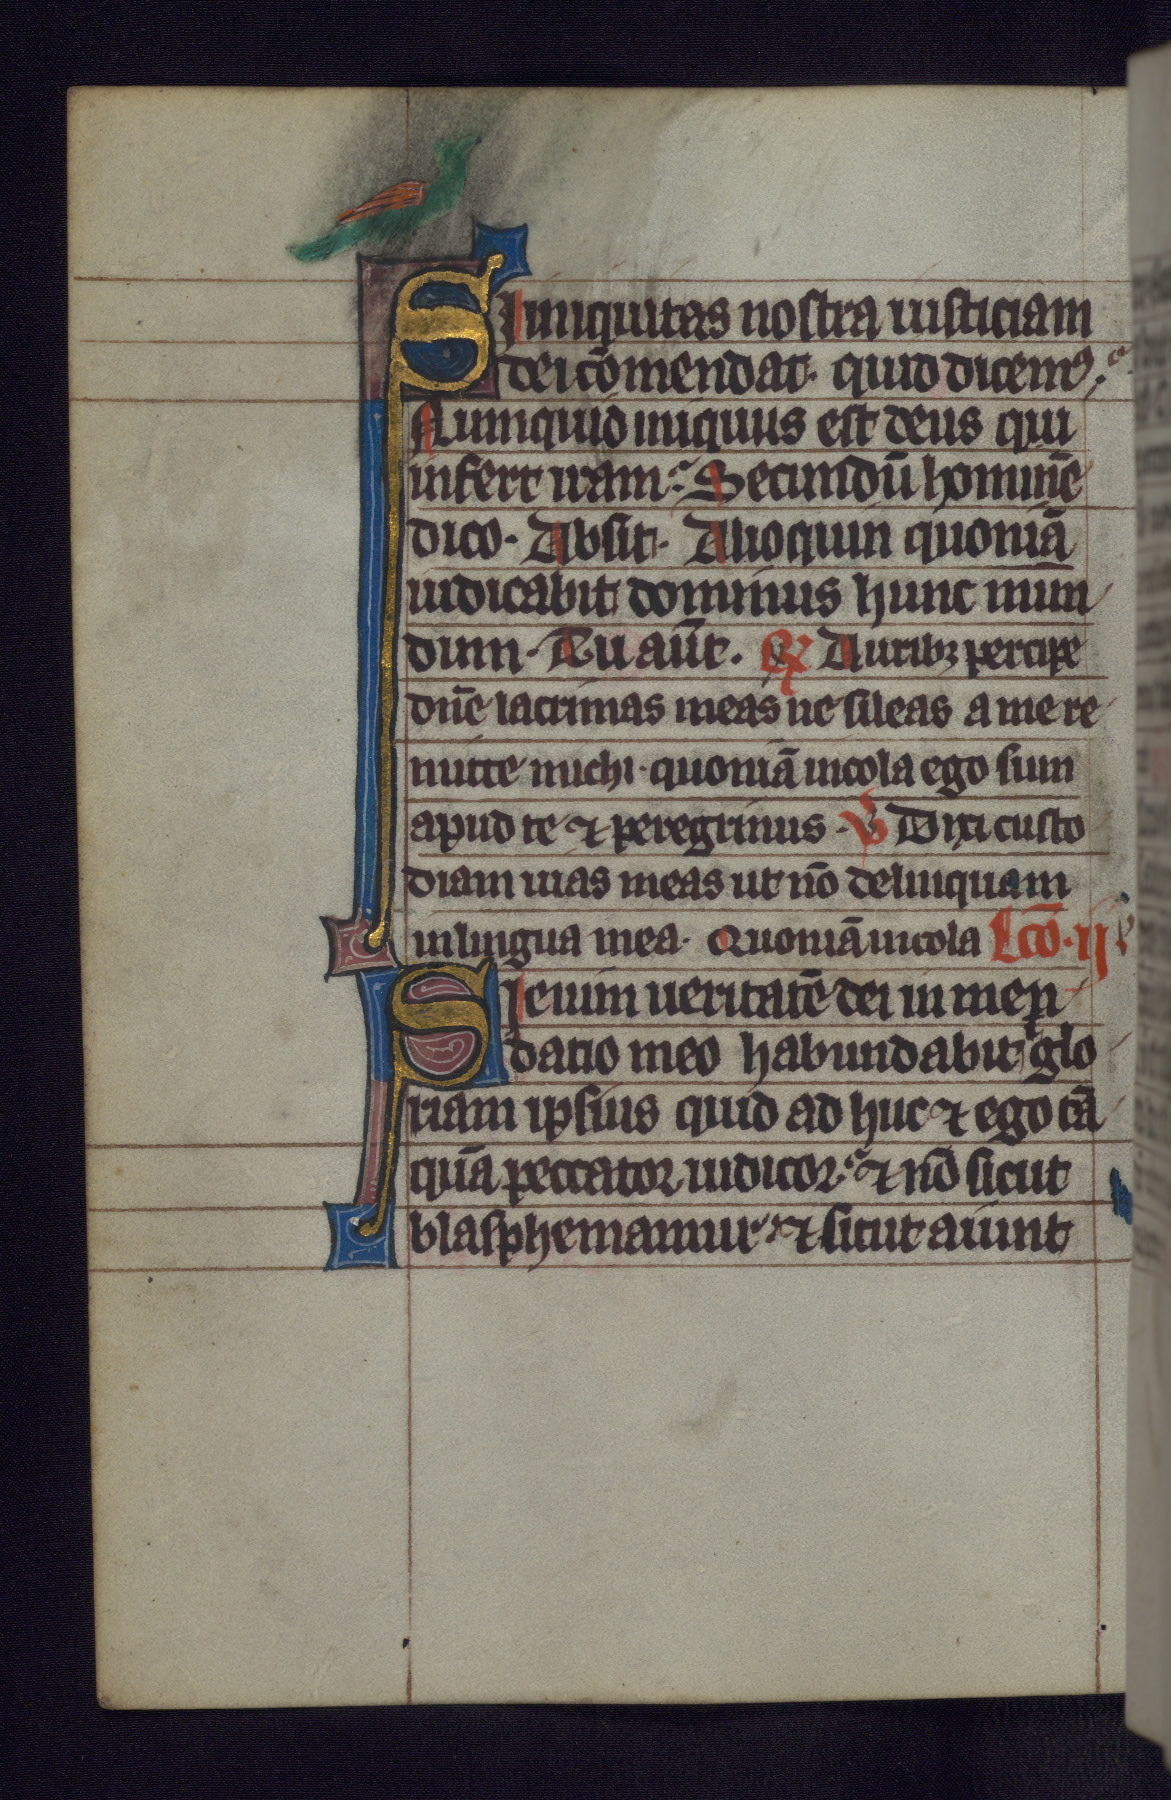 SI iniquitas nostra iusticiam
dei cōmendat. quid dicemꝰ?
Nunquid iniquus est deus qui
infert iram? Secundū hominē
dico. Absit. Alioquin quoniā
iudicabit dominus hunc mun
dum. Tu aūt. ℟ Auribꝫ percipe
dn̄e lacrimas meas ne sileas a me re
mitte michi. quoniā incola ego sum
apud te ⁊ peregrinus. ℣ Dixi custo
diam uias meas ut nō delinquam
in lingua mea. Quoniā incola Lcō. ii
SI enim ueritatē dei in men
datio meo habundabit glo
riam ipsius quid ad huc ⁊ ego tā
quā peccator iudicor? ⁊ nō sicut
blasphemamur ⁊ sicut aiunt